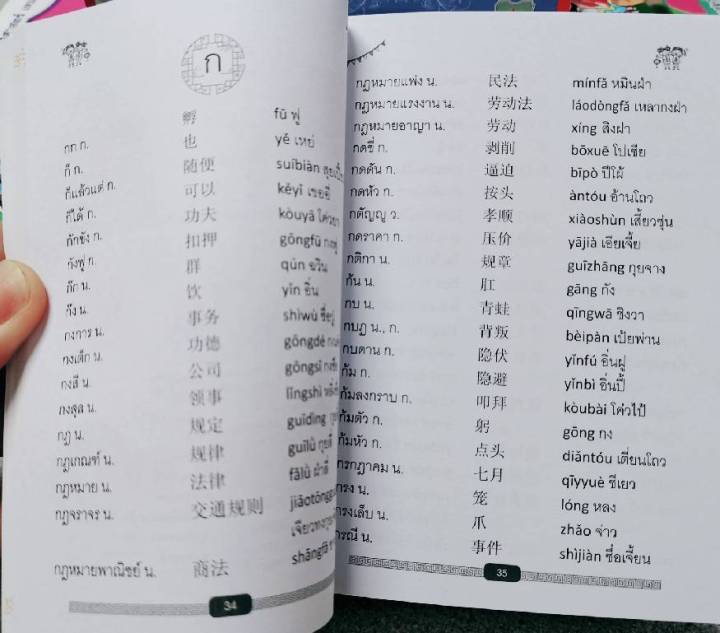 ก
กก ก. 孵 fū ฟู
ก็ ก. 也 yě เหย่
ก็แล้วแต่ ก. 随便 suíbiàn
ก็ได้ ก. 可以 kěyǐ เขออี่
กักขัง ก. 功夫 kòuyā
กังฟู ก. 扣押 gōngfū
ก๊ก น. 群 qún ฉวิน
น. 饮 yǐn อิ่น
กงการ น. 事务 shìwù
กงเต็ก น. 功德 gōngdé
กงสี น. 公司 gōngsī
กงสุล น. 领事 lǐngshì
กฎ น. 规定 guīdìng
กฎเกณฑ์ น. 规律 guīlǜ
กฎหมาย น. 法律 fǎlǜ ฝ่าลวี่
กฎจราจร น. 交通规则
กฎหมายพาณิชย์ น. 商法 shāngfǎ
34
กฎหมายแพ่ง น. 民法 mínfǎ หมินฝ่า
กฎหมายแรงงาน น. 劳动法 láodòngfǎ เหลากงฝ่า
กฎหมายอาญา น. 劳动 xíng สิงฝา
กดขี่ ก. 剥削 bōxuē โปเซีย
กดดัน ก. 逼迫 bīpò ปีโผ้
กดหัว ก. 按头 àntóu อ้านโถว
กตัญญู ว. 孝顺 xiàoshùn เสี้ยวชุ่น
กดราคา ก. 压价 yājià เอียเจี้ย
กติกา น. 规章 guīzhāng กุยจาง
ก้น น. 肛 gāng กัง
กบ น. 青蛙 qīngwā ชิงวา
กบฏ น., ก. 背叛 bèipàn เป้ยพ่าน
กบดาน ก. 隐伏 yǐnfú อิ่นฝู
ก้ม ก. 隐避 yǐnbì อิ่นปี้
ก้มลงกราบ ก. 叩拜 kòubài โค่วไป้
ก้มตัว ก. 躬 gōng กง
ก้มหัว ก. 点头 diǎntóu เตี่ยนโถว
กรกฎาคม น. 七月 qīyyuè ชีเยว
กรง น. 笼 lóng หลง
กรงเล็บ น. 爪 zhǎo จ่าว
กรณี น. 事件 shìjiàn ซื่อเจี้ยน
35